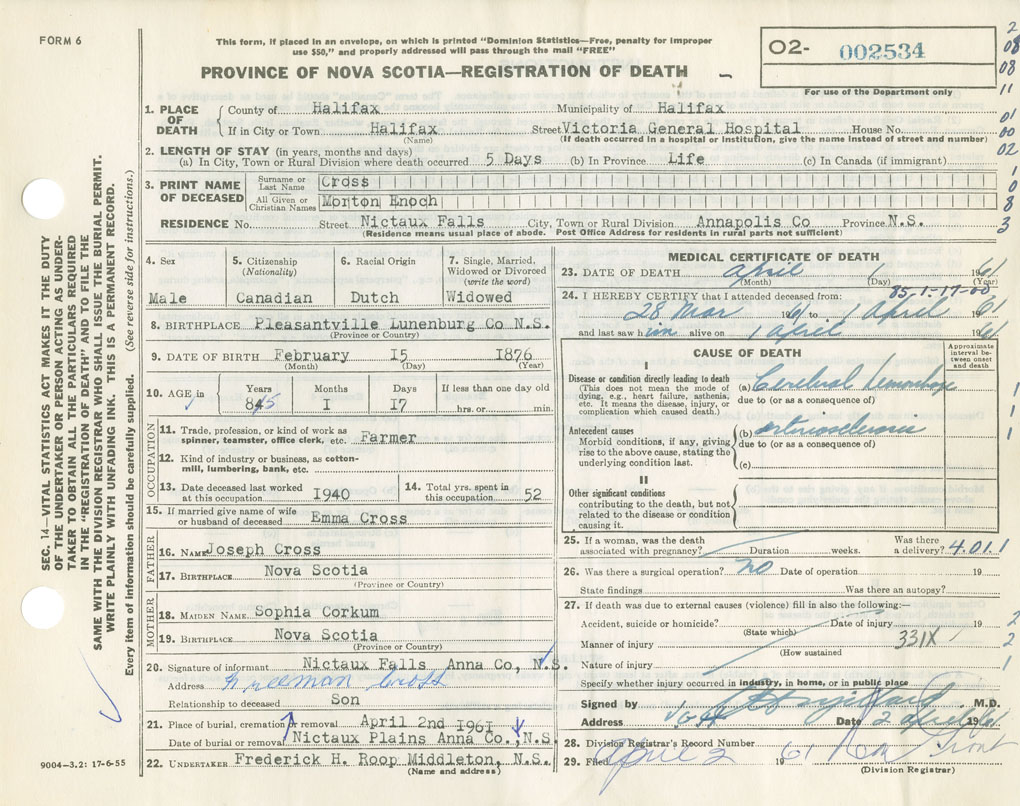 FORM 6
This form, if placed in an envelope, on which is printed "Dominion Statistics—Free, penalty for improper
use $50," and properly addressed will pass through the mail "FREE"
PROVINCE OF NOVA SCOTIA—REGISTRATION OF DEATH
O2- 002534
For use of the Department only
1. PLACE OF DEATH County of Halifax Municipality of Halifax
If in City or Town Halifax Street Victoria General Hospital House No.
(Name) (If death occurred in a hospital or institution, give the name instead of street and number)
2. LENGTH OF STAY (in years, months and days)
(a) In City, Town or Rural Division where death occurred 5 Days (b) In Province Life (c) In Canada (if immigrant)
3. PRINT NAME OF DECEASED Surname or Last Name Cross
All Given or Christian Names Morton Enoch
RESIDENCE No. Street Nictaux Falls City, Town or Rural Division Annapolis Co Province N.S.
(Residence means usual place of abode. Post Office Address for residents in rural parts not sufficient)
4. Sex Male
5. Citizenship (Nationality) Canadian
6. Racial Origin Dutch
7. Single, Married, Widowed or Divorced (write the word) Widowed
8. BIRTHPLACE Pleasantville Lunenburg Co N.S.
(Province or Country)
9. DATE OF BIRTH February 15 1876
(Month) (Day) (Year)
10. AGE in Years Months Days If less than one day old
85 1 17 hrs. or min.
OCCUPATION
11. Trade, profession, or kind of work as spinner, teamster, office clerk, etc. Farmer
12. Kind of industry or business, as cotton-mill, lumbering, bank, etc.
13. Date deceased last worked at this occupation 1940
14. Total yrs. spent in this occupation 52
15. If married give name of wife or husband of deceased Emma Cross
FATHER
16. NAME Joseph Cross
17. BIRTHPLACE Nova Scotia
(Province or Country)
MOTHER
18. MAIDEN NAME Sophia Corkum
19. BIRTHPLACE Nova Scotia
(Province or Country)
20. Signature of informant Nictaux Falls Anna Co, N.S.
Address Freeman Cross
Relationship to deceased Son
21. Place of burial, cremation or removal April 2nd 1961
Date of burial or removal Nictaux Plains Anna Co., N.S.
22. UNDERTAKER Frederick H. Roop Middleton, N.S.
(Name and address)
MEDICAL CERTIFICATE OF DEATH
23. DATE OF DEATH April 1 1961
(Month) (Day) (Year)
85-1-17-00
24. I HEREBY CERTIFY that I attended deceased from:
28 Mar 1961 to 1 April 1961
and last saw him alive on 1 April 1961
CAUSE OF DEATH
Approximate interval between onset and death
I
Disease or condition directly leading to death
(This does not mean the mode of dying, e.g., heart failure, asthenia, etc. It means the disease, injury, or complication which caused death.)
(a) Cerebral hemorrhage
due to (or as consequence of)
Antecedent causes
Morbid conditions, if any, giving rise to the above cause, stating the underlying condition last.
(b) Arteriosclerosis
due to (or as a consequence of)
(c)
II
Other significant conditions
contributing to the death, but not related to the disease or condition causing it.
25. If a woman, was the death associated with pregnancy? Duration weeks. Was there a delivery? 4.01.1
26. Was there a surgical operation? no Date of operation 19
State findings Was there an autopsy?
27. If death was due to external causes (violence) fill in also the following:—
Accident, suicide or homicide? Date of injury 19
(State which)
Manner of injury 331X
(How sustained
Nature of injury
Specify whether injury occurred in industry, in home, or in public place
Signed by M.D.
Address Date 2 April 1961
28. Division Registrar's Record Number
29. Filed April 2 1961
(Division Registrar)
9004-3.2: 17-6-55
SEC. 14—VITAL STATISTICS ACT MAKES IT THE DUTY
OF THE UNDERTAKER OR PERSON ACTING AS UNDER-
TAKER TO OBTAIN ALL THE PARTICULARS REQUIRED
IN THE "REGISTRATION OF DEATH" AND TO FILE THE
SAME WITH THE DIVISION REGISTRAR WHO SHALL ISSUE THE BURIAL PERMIT.
WRITE PLAINLY WITH UNFADING INK. THIS IS A PERMANENT RECORD.
Every item of information should be carefully supplied. (See reverse side for instructions.)